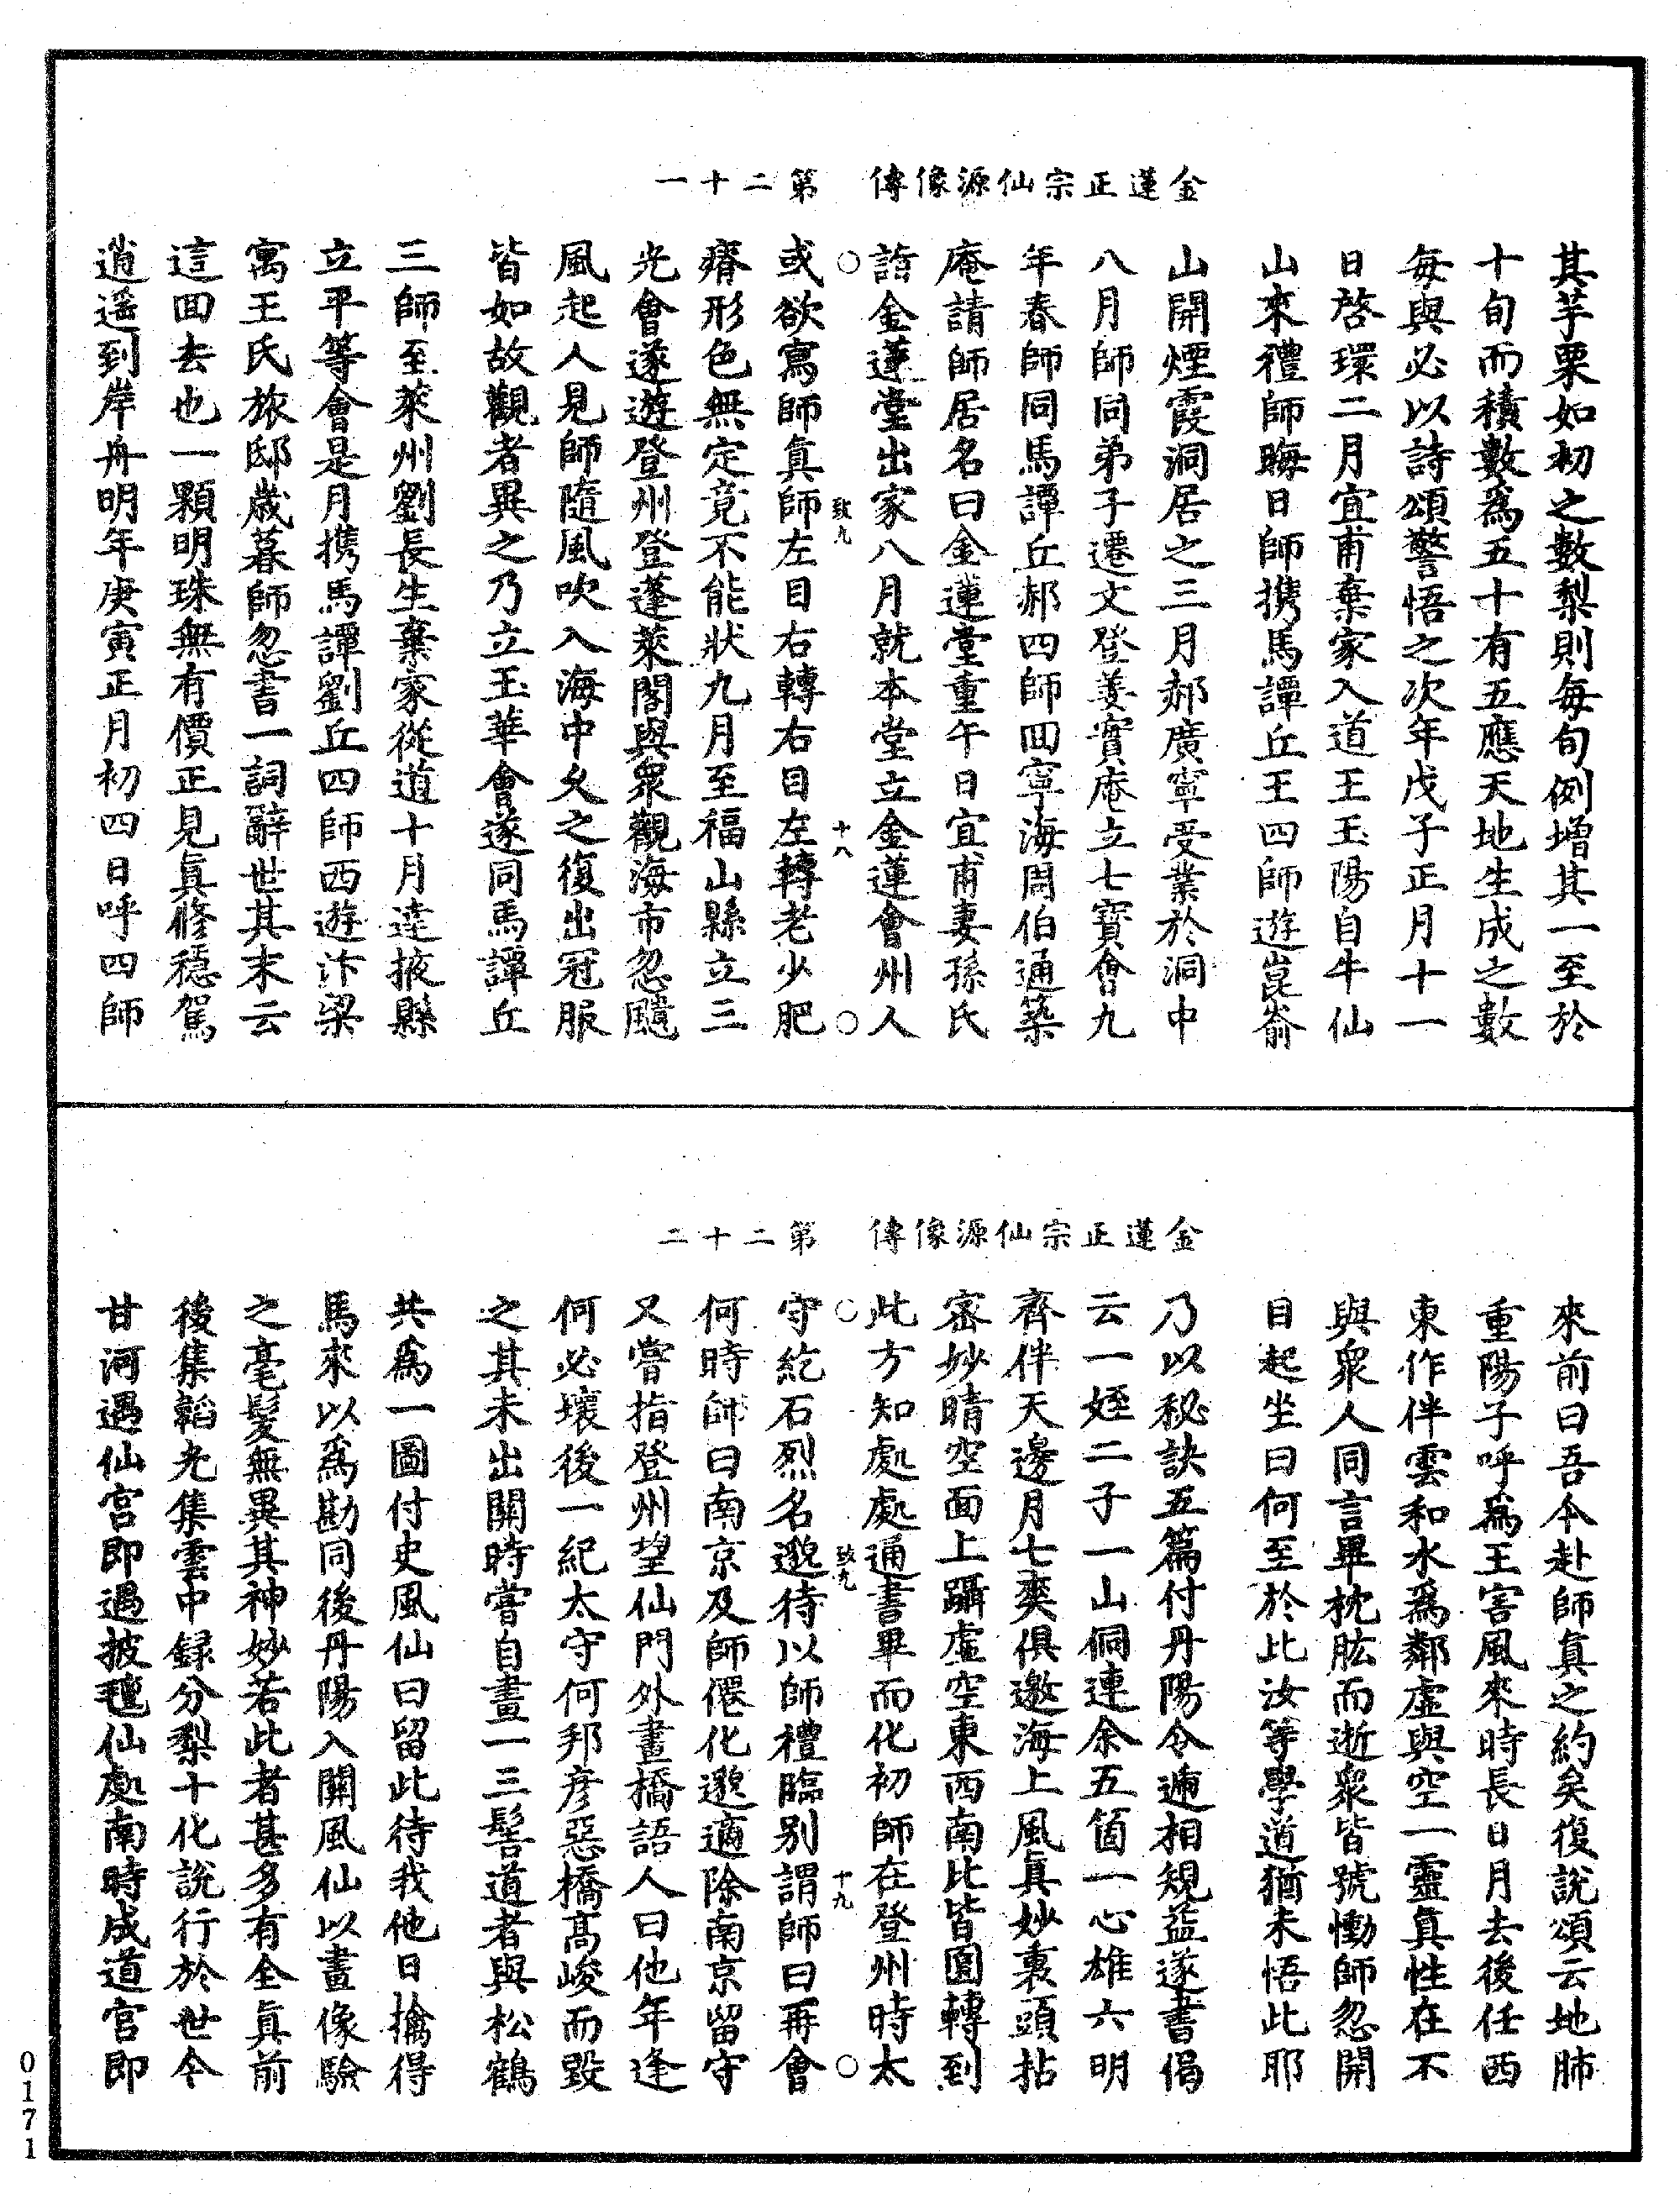 金蓮正宗仙源像傳　第二十一
其芋栗如初之數梨則每旬例增其一至於
十旬而積數爲五十有五應天地生成之數
每與必以詩頌警悟之次年戊子正月十一
日啓環二月宜甫棄家入道王玉陽自牛仙
山來禮師晦日師携馬譚丘王四師遊崑嵛
山開煙霞洞居之三月郝廣寧受業於洞中
八月師同弟子遷文登姜實庵立七寶會九
年春師同馬譚丘郝四師回寧海周伯通築
庵請師居名曰金蓮堂重午日宜甫妻孫氏
詣金蓮堂出家八月就本堂立金蓮會州人
○　致九　十八　○
或欲寫師真師左目右轉右目左轉老少肥
瘠形色無定竟不能狀九月至福山縣立三
光會遂遊登州登蓬萊閣與衆觀海市忽颺
風起人見師隨風吹入海中久之復出冠服
皆如故觀者異之乃立玉華會遂同馬譚丘
三師至萊州劉長生棄家從道十月達掖縣
立平等會是月携馬譚劉丘四師西遊汴梁
寓王氏旅邸歲暮師忽書一詞辭世其末云
這回去也一顆明珠無有價正見真修穩駕
逍遥到岸舟明年庚寅正月初四日呼四師
金蓮正宗仙源像傳　第二十二
來前曰吾今赴師真之約矣復說頌云地肺
重陽子呼爲王害風來時長日月去後任西
東作伴雲和水爲鄰虛與空一靈真性在不
與衆人同言畢枕肱而逝衆皆號慟師忽開
目起坐曰何至於此汝等學道猶未悟此耶
乃以秘訣五篇付丹陽令遞相規益遂書偈
云一姪二子一山侗連余五箇一心雄六明
齊伴天邊月七爽俱邀海上風真妙裏頭拈
密妙晴空面上躡虛空東西南北皆圓轉到
此方知處處通書畢而化初師在登州時太
○　致九　十九　○
守紇石烈名邈待以師禮臨别謂師曰再會
何時師曰南京及師僊化邈適除南京留守
又嘗指登州望仙門外畫橋語人曰他年逢
何必壞後一紀太守何邦彦惡橋高峻而毀
之其未出關時嘗自畫一三髻道者與松鶴
共爲一圖付史風仙曰留此待我他日擒得
馬來以爲勘同後丹陽入關風仙以畫像驗
之毫髮無異其神妙若此者甚多有全真前
後集韜光集雲中録分梨十化說行於世今
甘河遇仙宫即遇披氊仙處南時成道宫即
0171